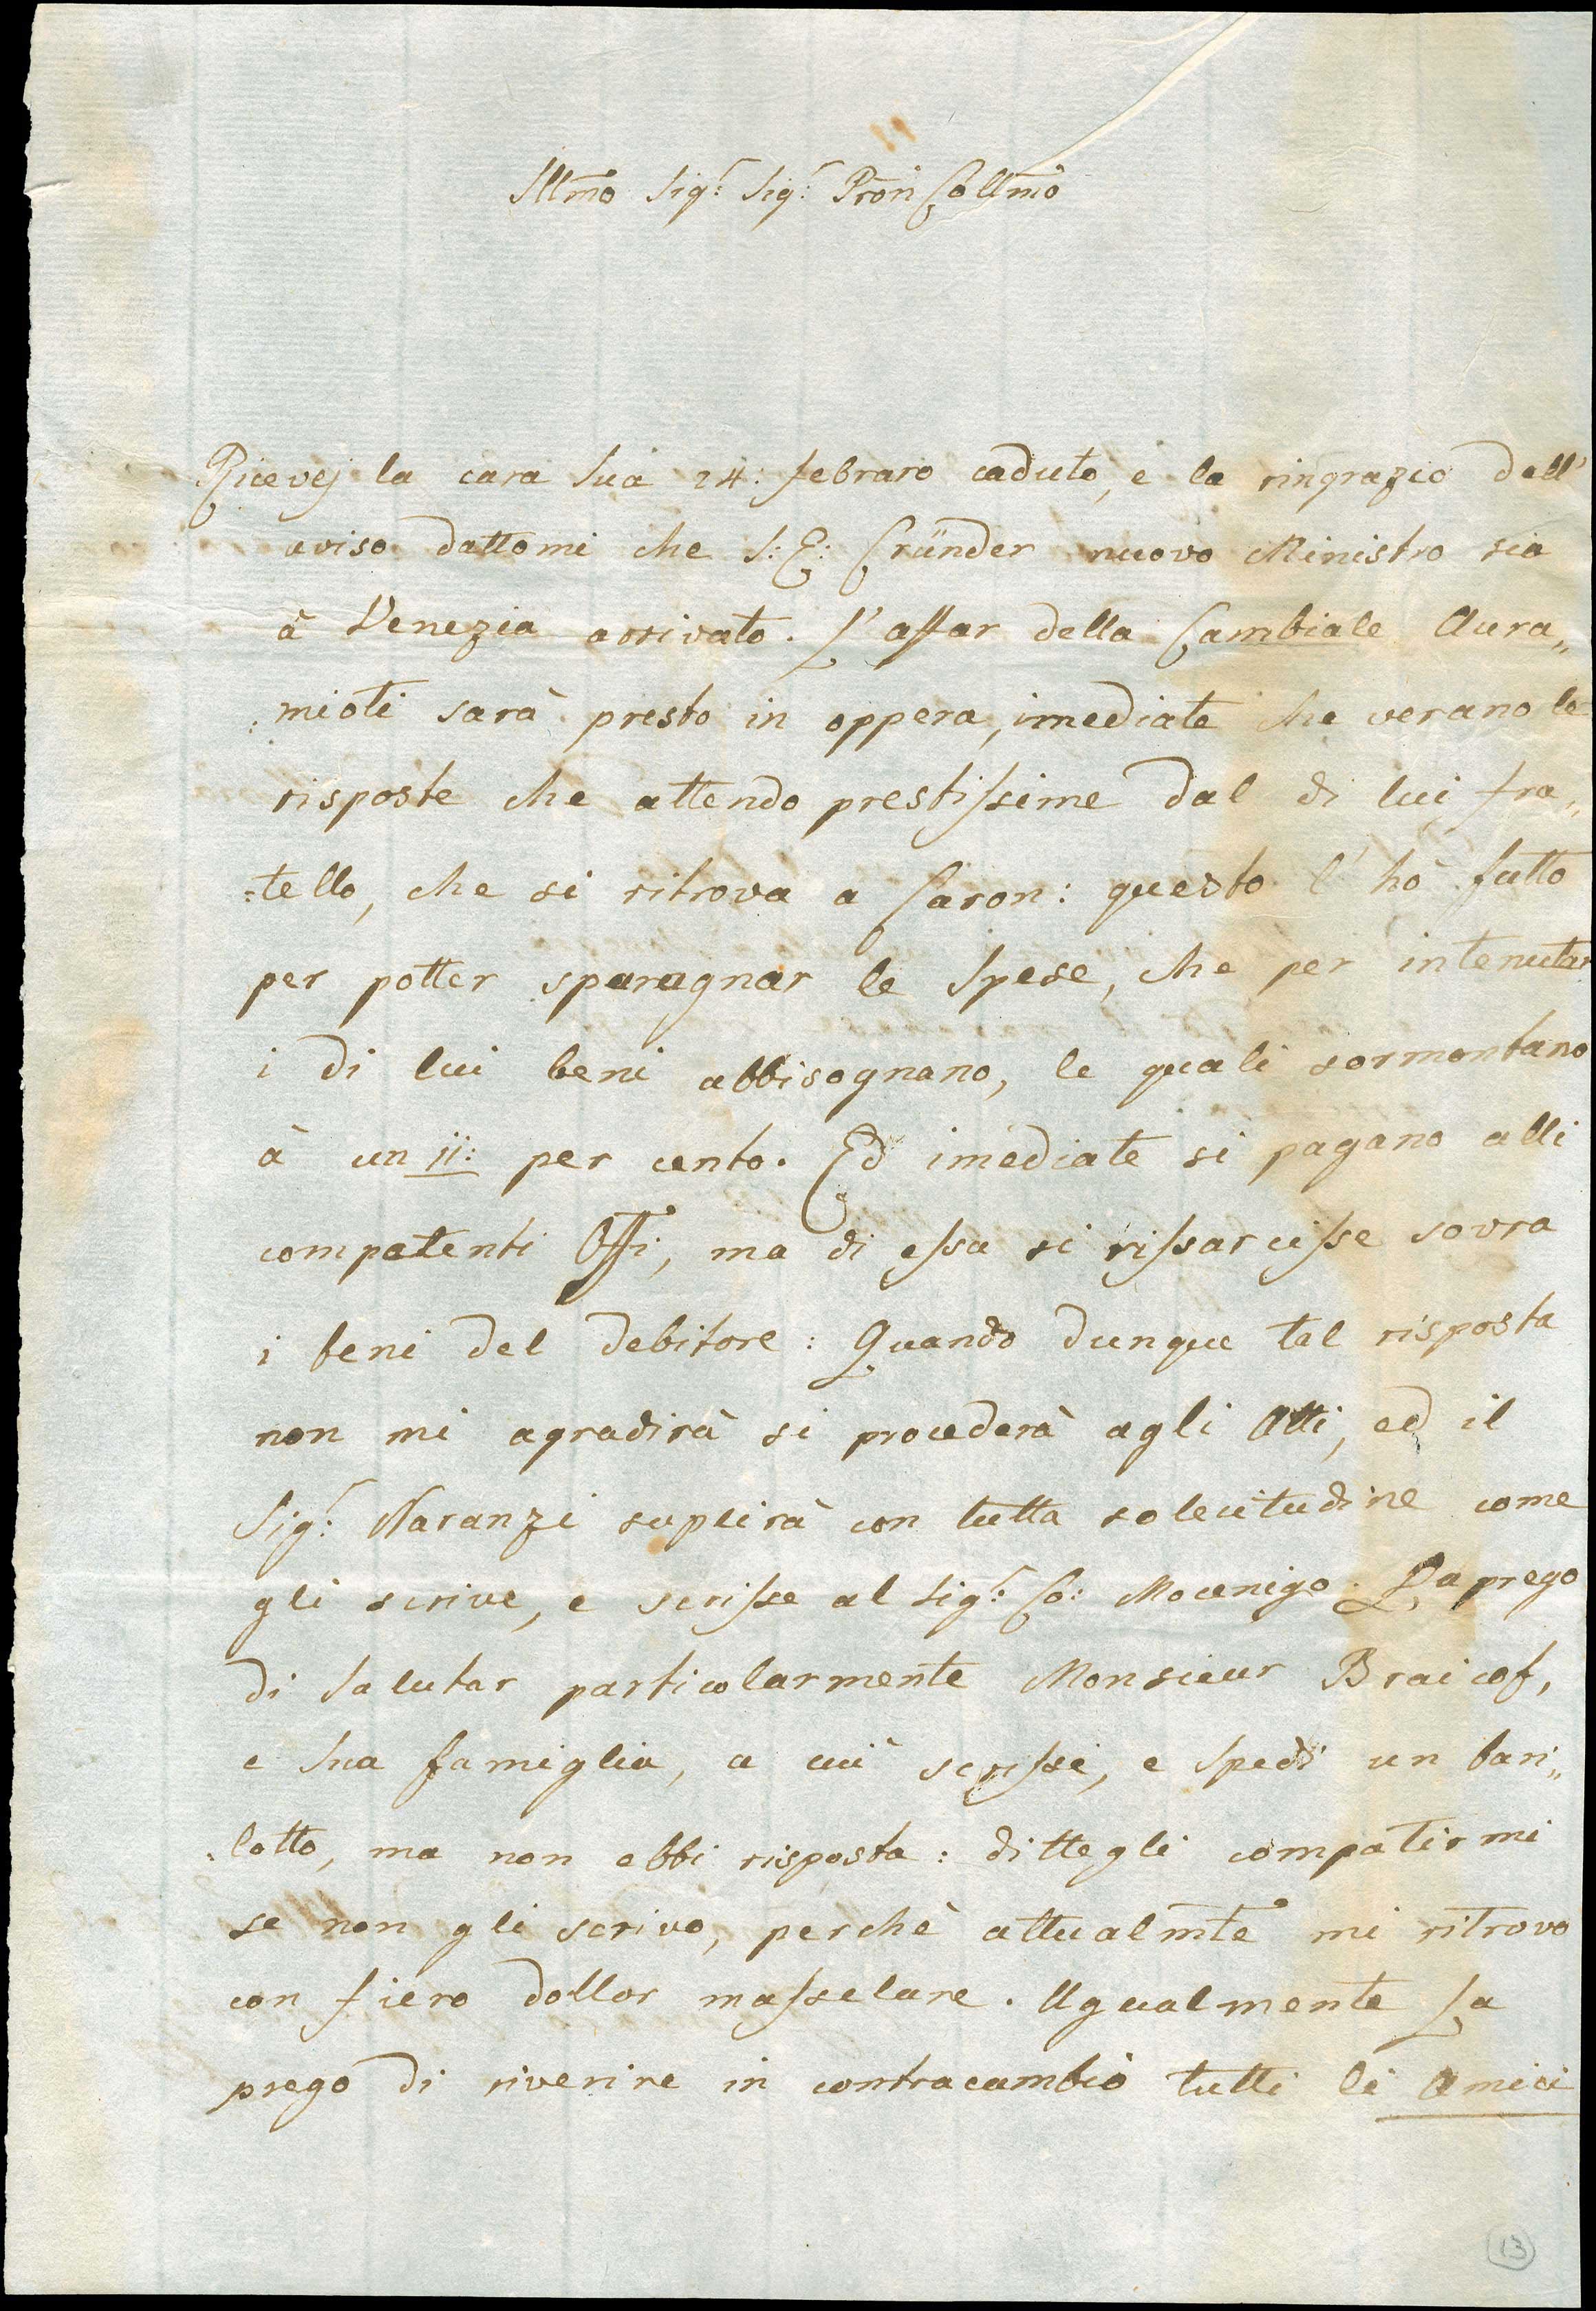 Illmo Sigr: Sigr: Pron Collmo
Ricevej la cara Sua 24: febraro caduto, e la ringrazio dell'
aviso dattomi che S: E: Cründer nuovo Ministro sia
à Venezia arrivato. L'affar della Cambiale Aura„
mioti sarà presto in oppera, imediate che verano le
risposte che attendo prestissime dal di lui fra„
tello, che si ritrova a Coron: questo l'hò fatto
per potter sparagnar le Spese, che per intenutar
i di lui beni abbisognano, le quali sormontano
à un 11: per cento. Ed imediate si pagano alli
competenti Offi, ma di essa si rissarcisse sovra
i beni del debitore: Quando dunque tal risposta
non mi agradirà si procederà agli Atti, ed il
Sigr: Naranzi suplirà con tutta solecitudine come
gli scrive, e scrisse al Sigr: Co: Mocenigo. La prego
di Salutar particolarmente Monsieur Braicof,
e Sua famiglia, a cui scrissi, e Spedi un bari„
lotto, ma non ebbi risposta: dittegli compatirmi
se non gli scrivo, perchè attualmte mi ritrovo
con fiero dollor masselare. Ugualmente La
prego di riverire in contracambio tutti li Amici
13